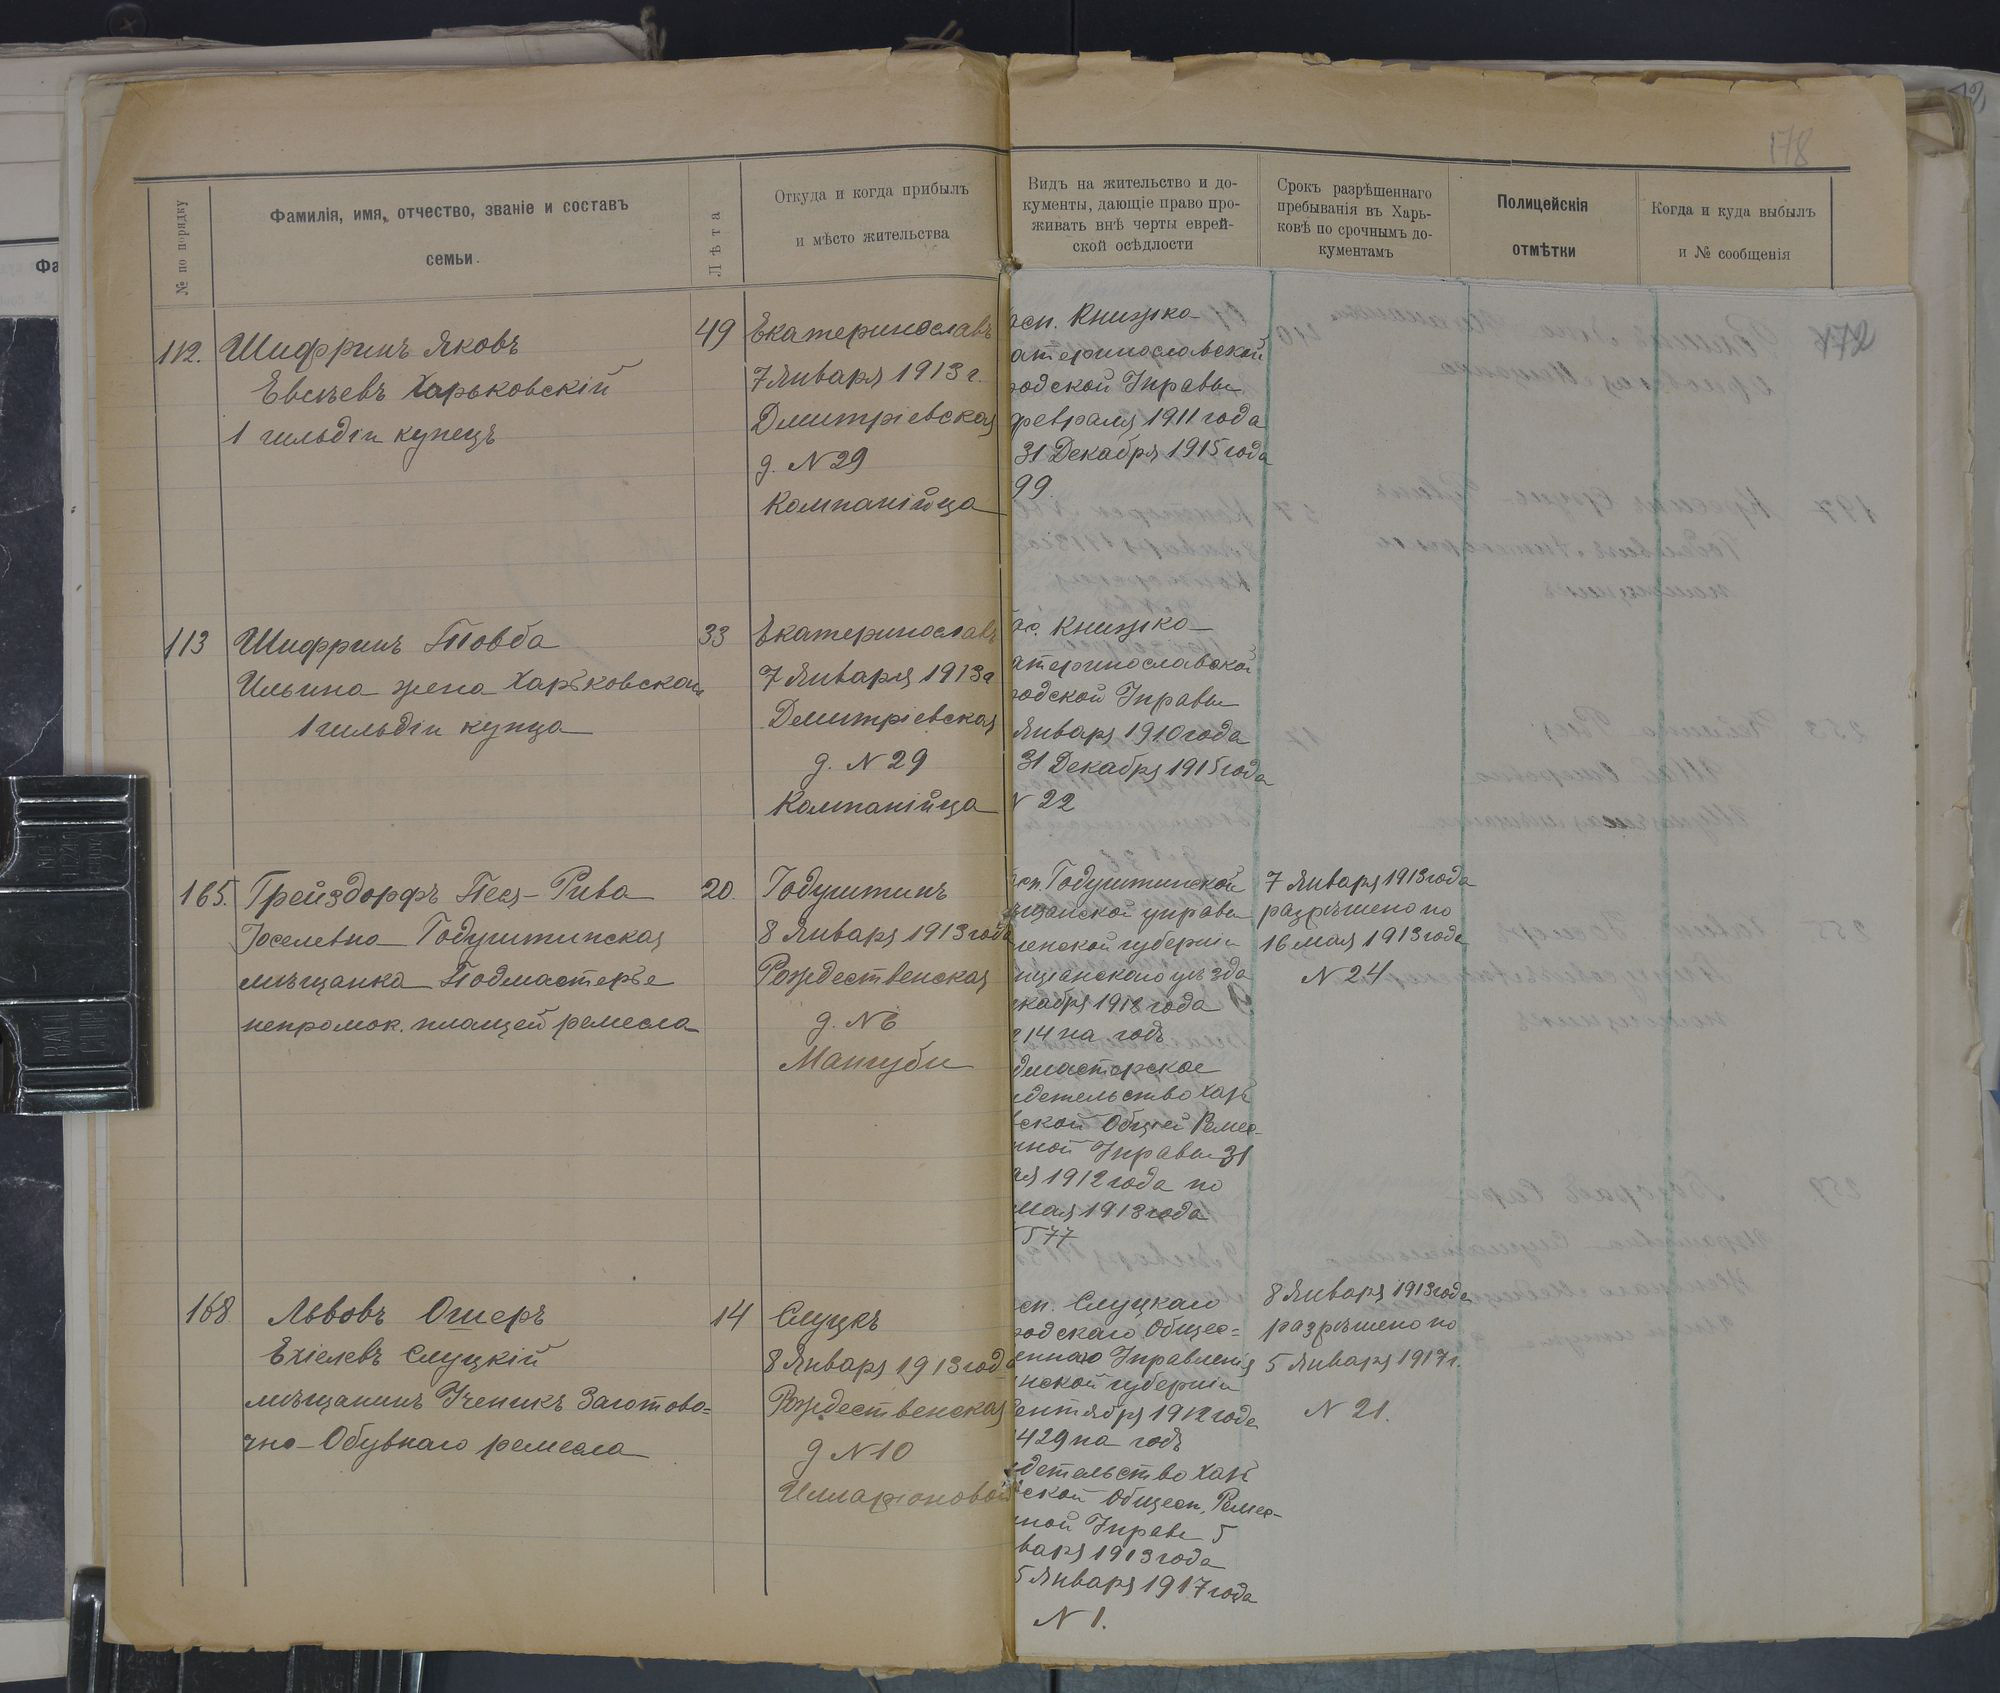 178
№ по порядку
Фамилія, имя, отчество, званіе и составъ
семьи.
Лѣта
Откуда и когда прибылъ
и мѣсто жительства
Видъ на жительство и до-
кументы, дающіе право про-
живать внѣ черты еврей-
ской осѣдлости
Срокъ разрѣшеннаго
пребыванія въ Харь-
ковѣ по срочнымъ до-
кументамъ
Полицейскія
отмѣтки
Когда и куда выбылъ
и № сообщенія
112.
Шифринъ Яковъ
Евсѣевъ Харьковскій
1 гильдіи купецъ
49
Екатеринославъ
7 Января 1913 г.
Дмитріевская
д. № 29
Компанійца
асп. Книжка
атеринославской
родской Управы
февраля 1911 года
31 Декабря 1915 года
99.
113
Шифринъ Товба
Ильина жена Харьковскаго
1 гильдіи купца
33
Екатеринославъ
7 Января 1913 г
Дмитріевская
д. № 29
Компанійца
Книжка
атеринославской
родской Управы
Января 1910 года
31 Декабря 1915 года
№ 22
165.
Грейздорфъ Песя-Рива
Іоселевна Годутишская
мѣщанка Подмастерье
непромок. плащей ремесла
20.
8 Января 1913 года
Рождественская
д. № 6
Мангуби
мѣщанской управы
ленской губерніи
нцянскаго уѣзда
кабря 1912 года
14 на годъ
дмастерское
идетельство Харь
вской Общей Ремес-
нной Управы 31
ая 1912 года по
Мая 1913 года
577
7 Января 1913 года
разрѣшено по
16 мая 1913 года
№ 24
168
Львовъ Ошеръ
Ехіелевъ Слуцкій
мѣщанинъ Ученикъ Заготово=
чно-Обувнаго ремесла
14
Слуцкъ
8 Января 1913 года
Рождественская
д № 10
Илларіоновой
сп. Слуцкаго
родскаго Общес=
еннаго Управленія
нской губерніи
Сентября 1912 года
429 на годъ
идетельство Харь
вской Общеси. Ремес-
нной Управы 5
варя 1913 года
5 Января 1917 года
№ 1.
8 Января 1913 года
разрѣшено по
5 Января 1917 г.
№ 21.